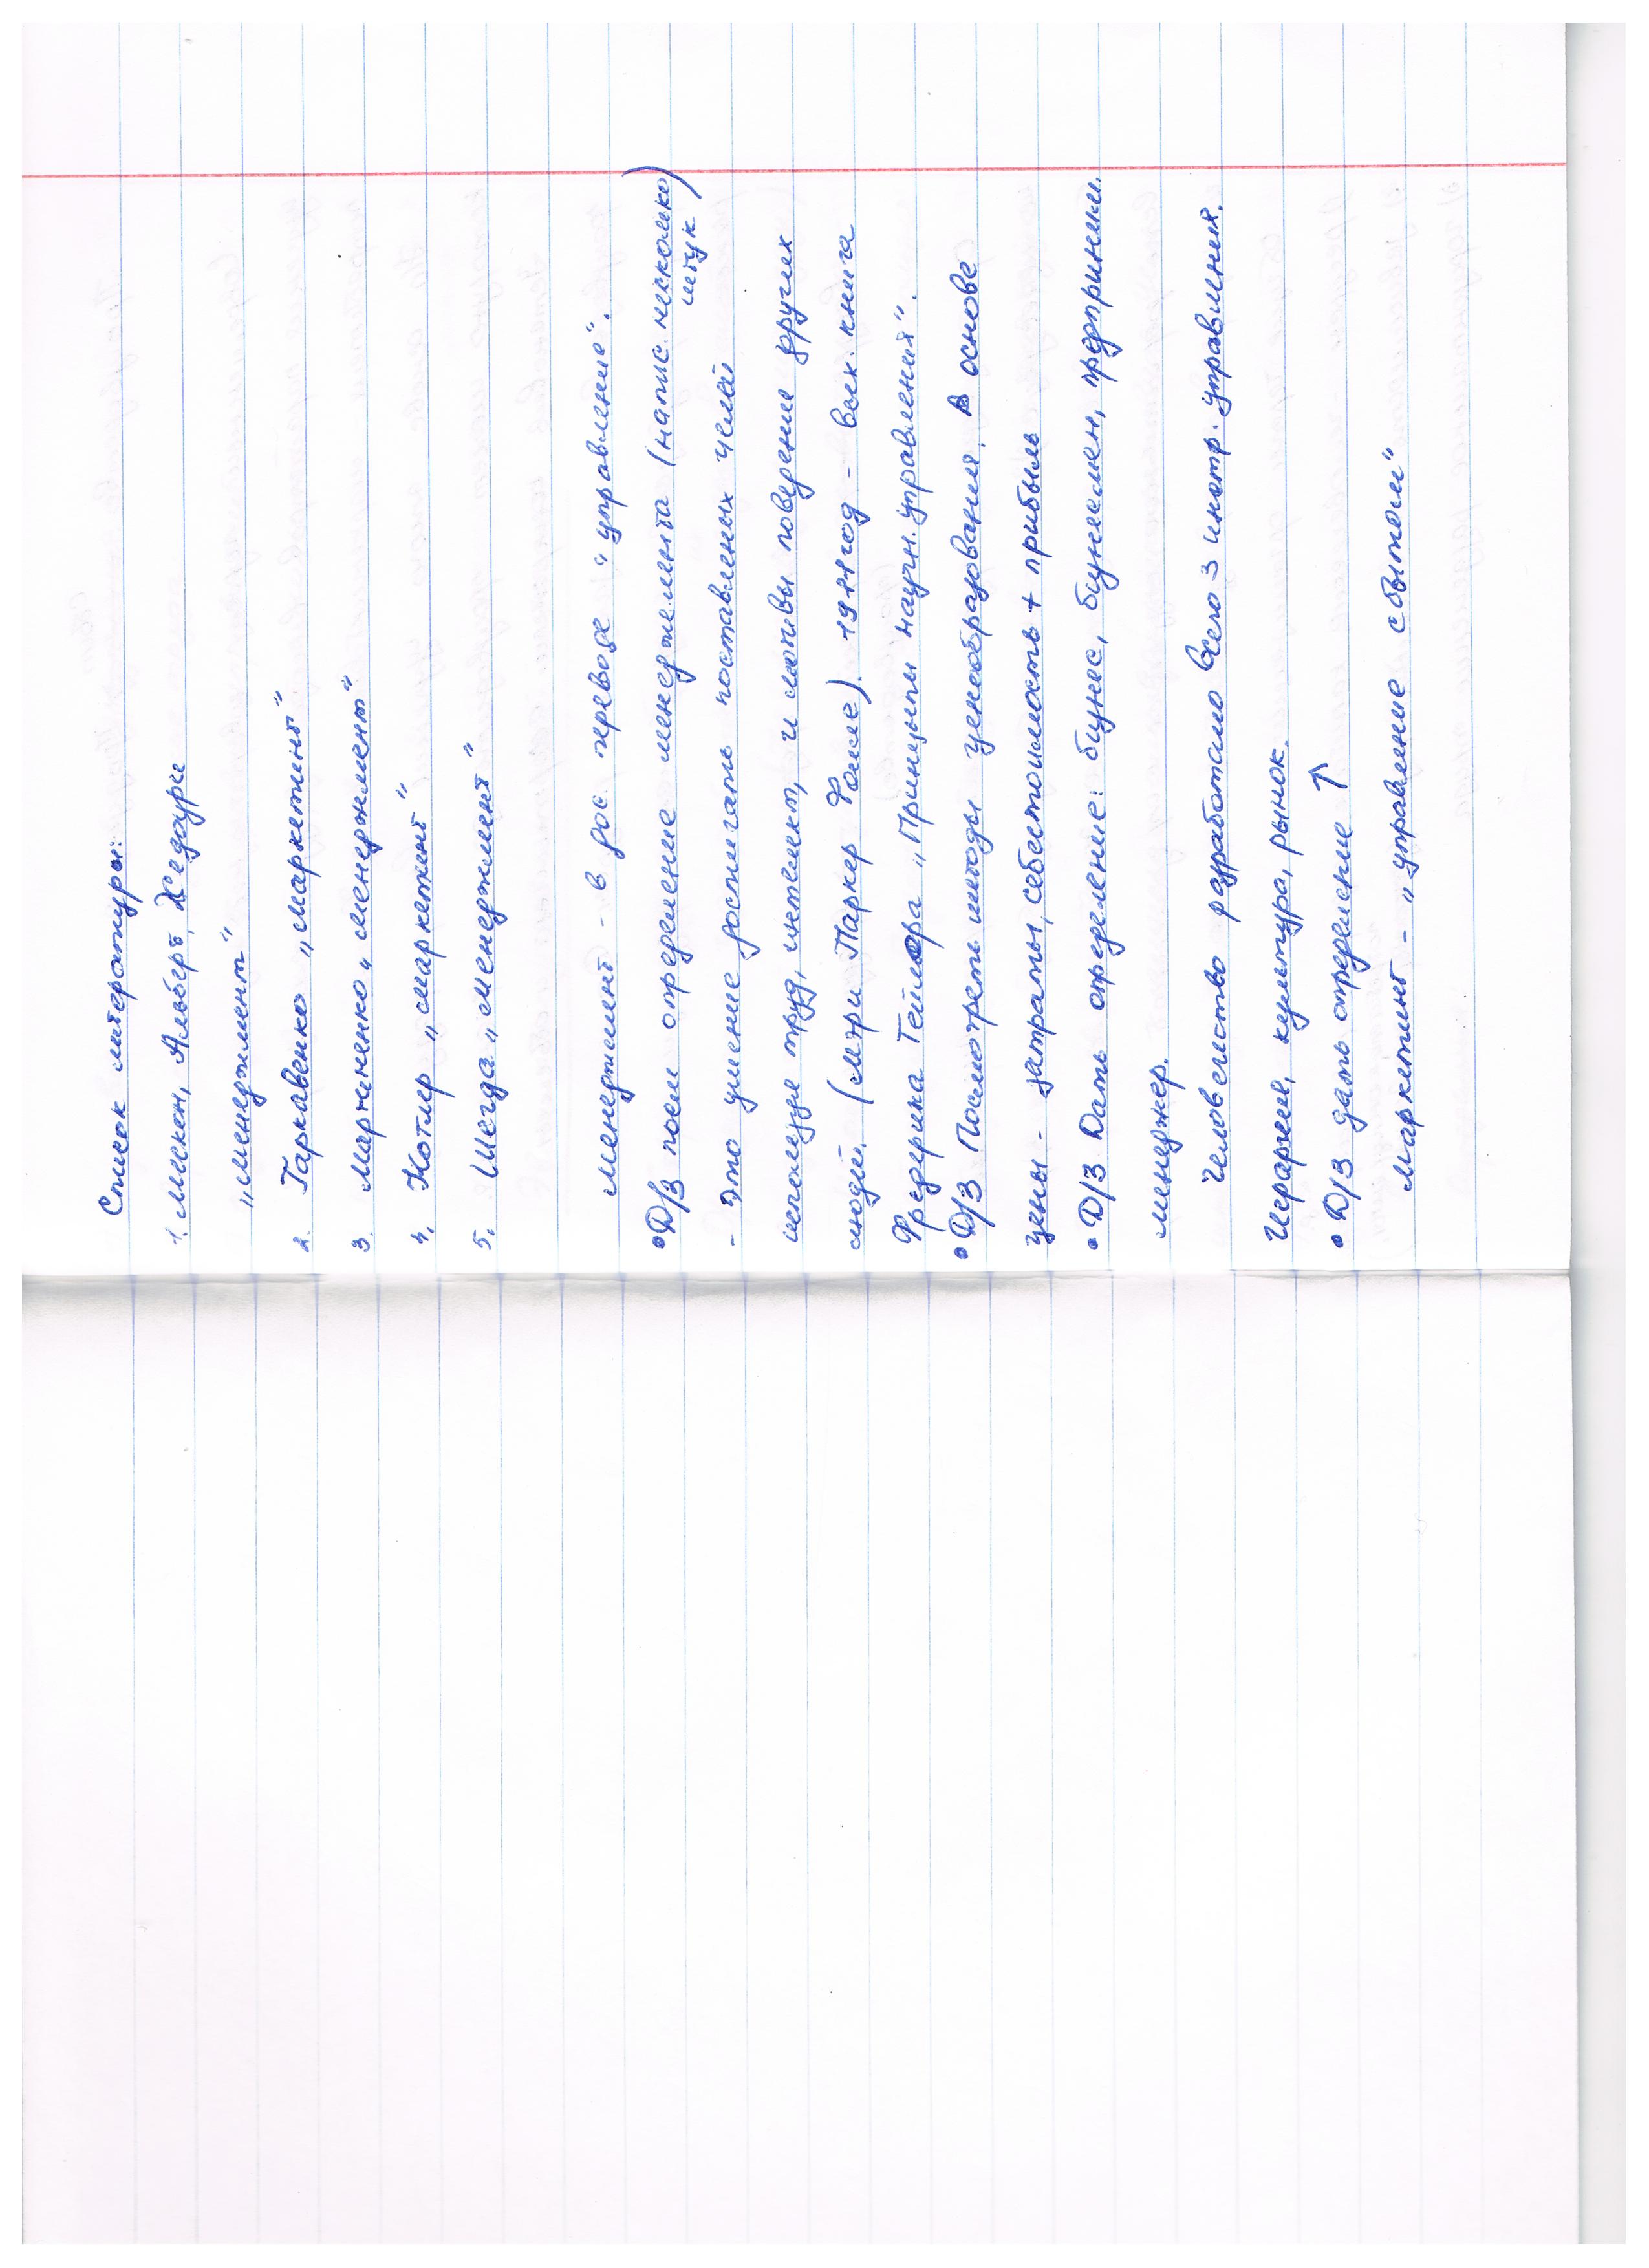 Список литературы:
1. Мескон, Альберт, Хедоури
„Менеджмент"
2. Гаркавенко „Маркетинг"
3. Марченко „Менеджмент"
4. Котлер „Маркетинг"
5. Шегда „Менеджмент"
Менеджмент - в дос. переводе "управление".
• Д/З поси определение менеджмента (напис. несколько
штук)
- Это умение достигать поставленых целей
использ труд, интелект, и мотивы поведение других
людей. (Мэри Паркер Фоше). 1911 год - вых. книга
Фредерика Тейлора „Принципы научн. управления".
• Д/З Посмотреть методы ценообразования, в основе
цены - затраты, себестоимость + прибыль
• Д/З Дать определение: бизнес, бизнесмен, предприним.
менеджер.
Человечество разработало всего 3 инстр. управления.
Иерархия, культура, рынок.
• Д/З дать определение ↑
Маркетинг - „управление сбытом"